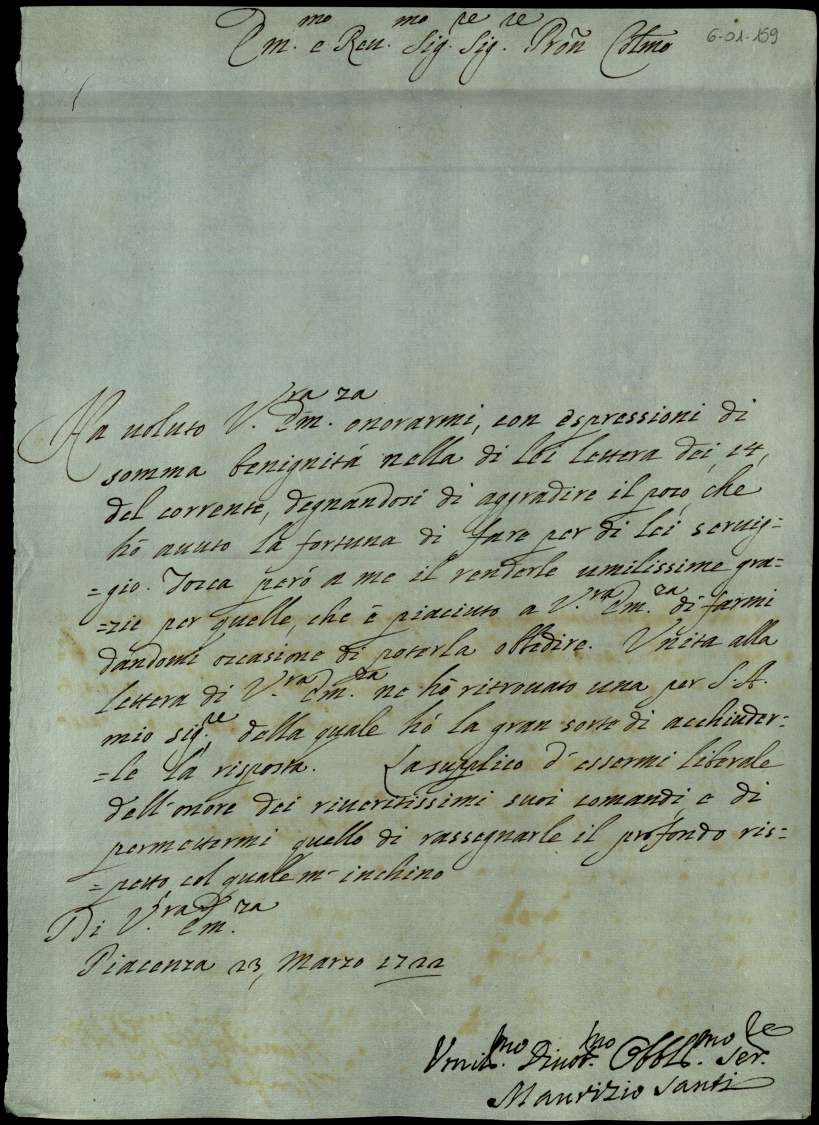 Em.mo e Reu.mo Sig.re Sig.re Prõn Colmo
6-01-169
Ha uoluto V.ra Em.za onorarmi, con espressioni di
somma benignitá nella di lei lettera dei 14,
del corrente, degnandosi di aggradire il poco, che
hò auuto la fortuna di fare per di lei seruig=
=gio. Tocca però a me il renderle umilissime gra=
=zie per quelle, che è piaciuto a V.ra Em.za di farmi
dandomi occasione di poterla obbedire. Vnita alla
lettera di V.ra Em.za ne hò ritrouato una per S. A.
mio sig.re della quale hò la gran sorte di acchiuder=
=le la risposta. La supplico d'essermi liberale
dell'onore dei riueritissimi suoi comandi, e di
permettermi quello di rassegnarle il profondo ris=
=petto, col quale m'inchino
Di V.ra Em.za
Piacenza 23, Marzo 1722
Vmil.mo Diuot.mo Obbl.mo Ser.re
Maurizio Santi